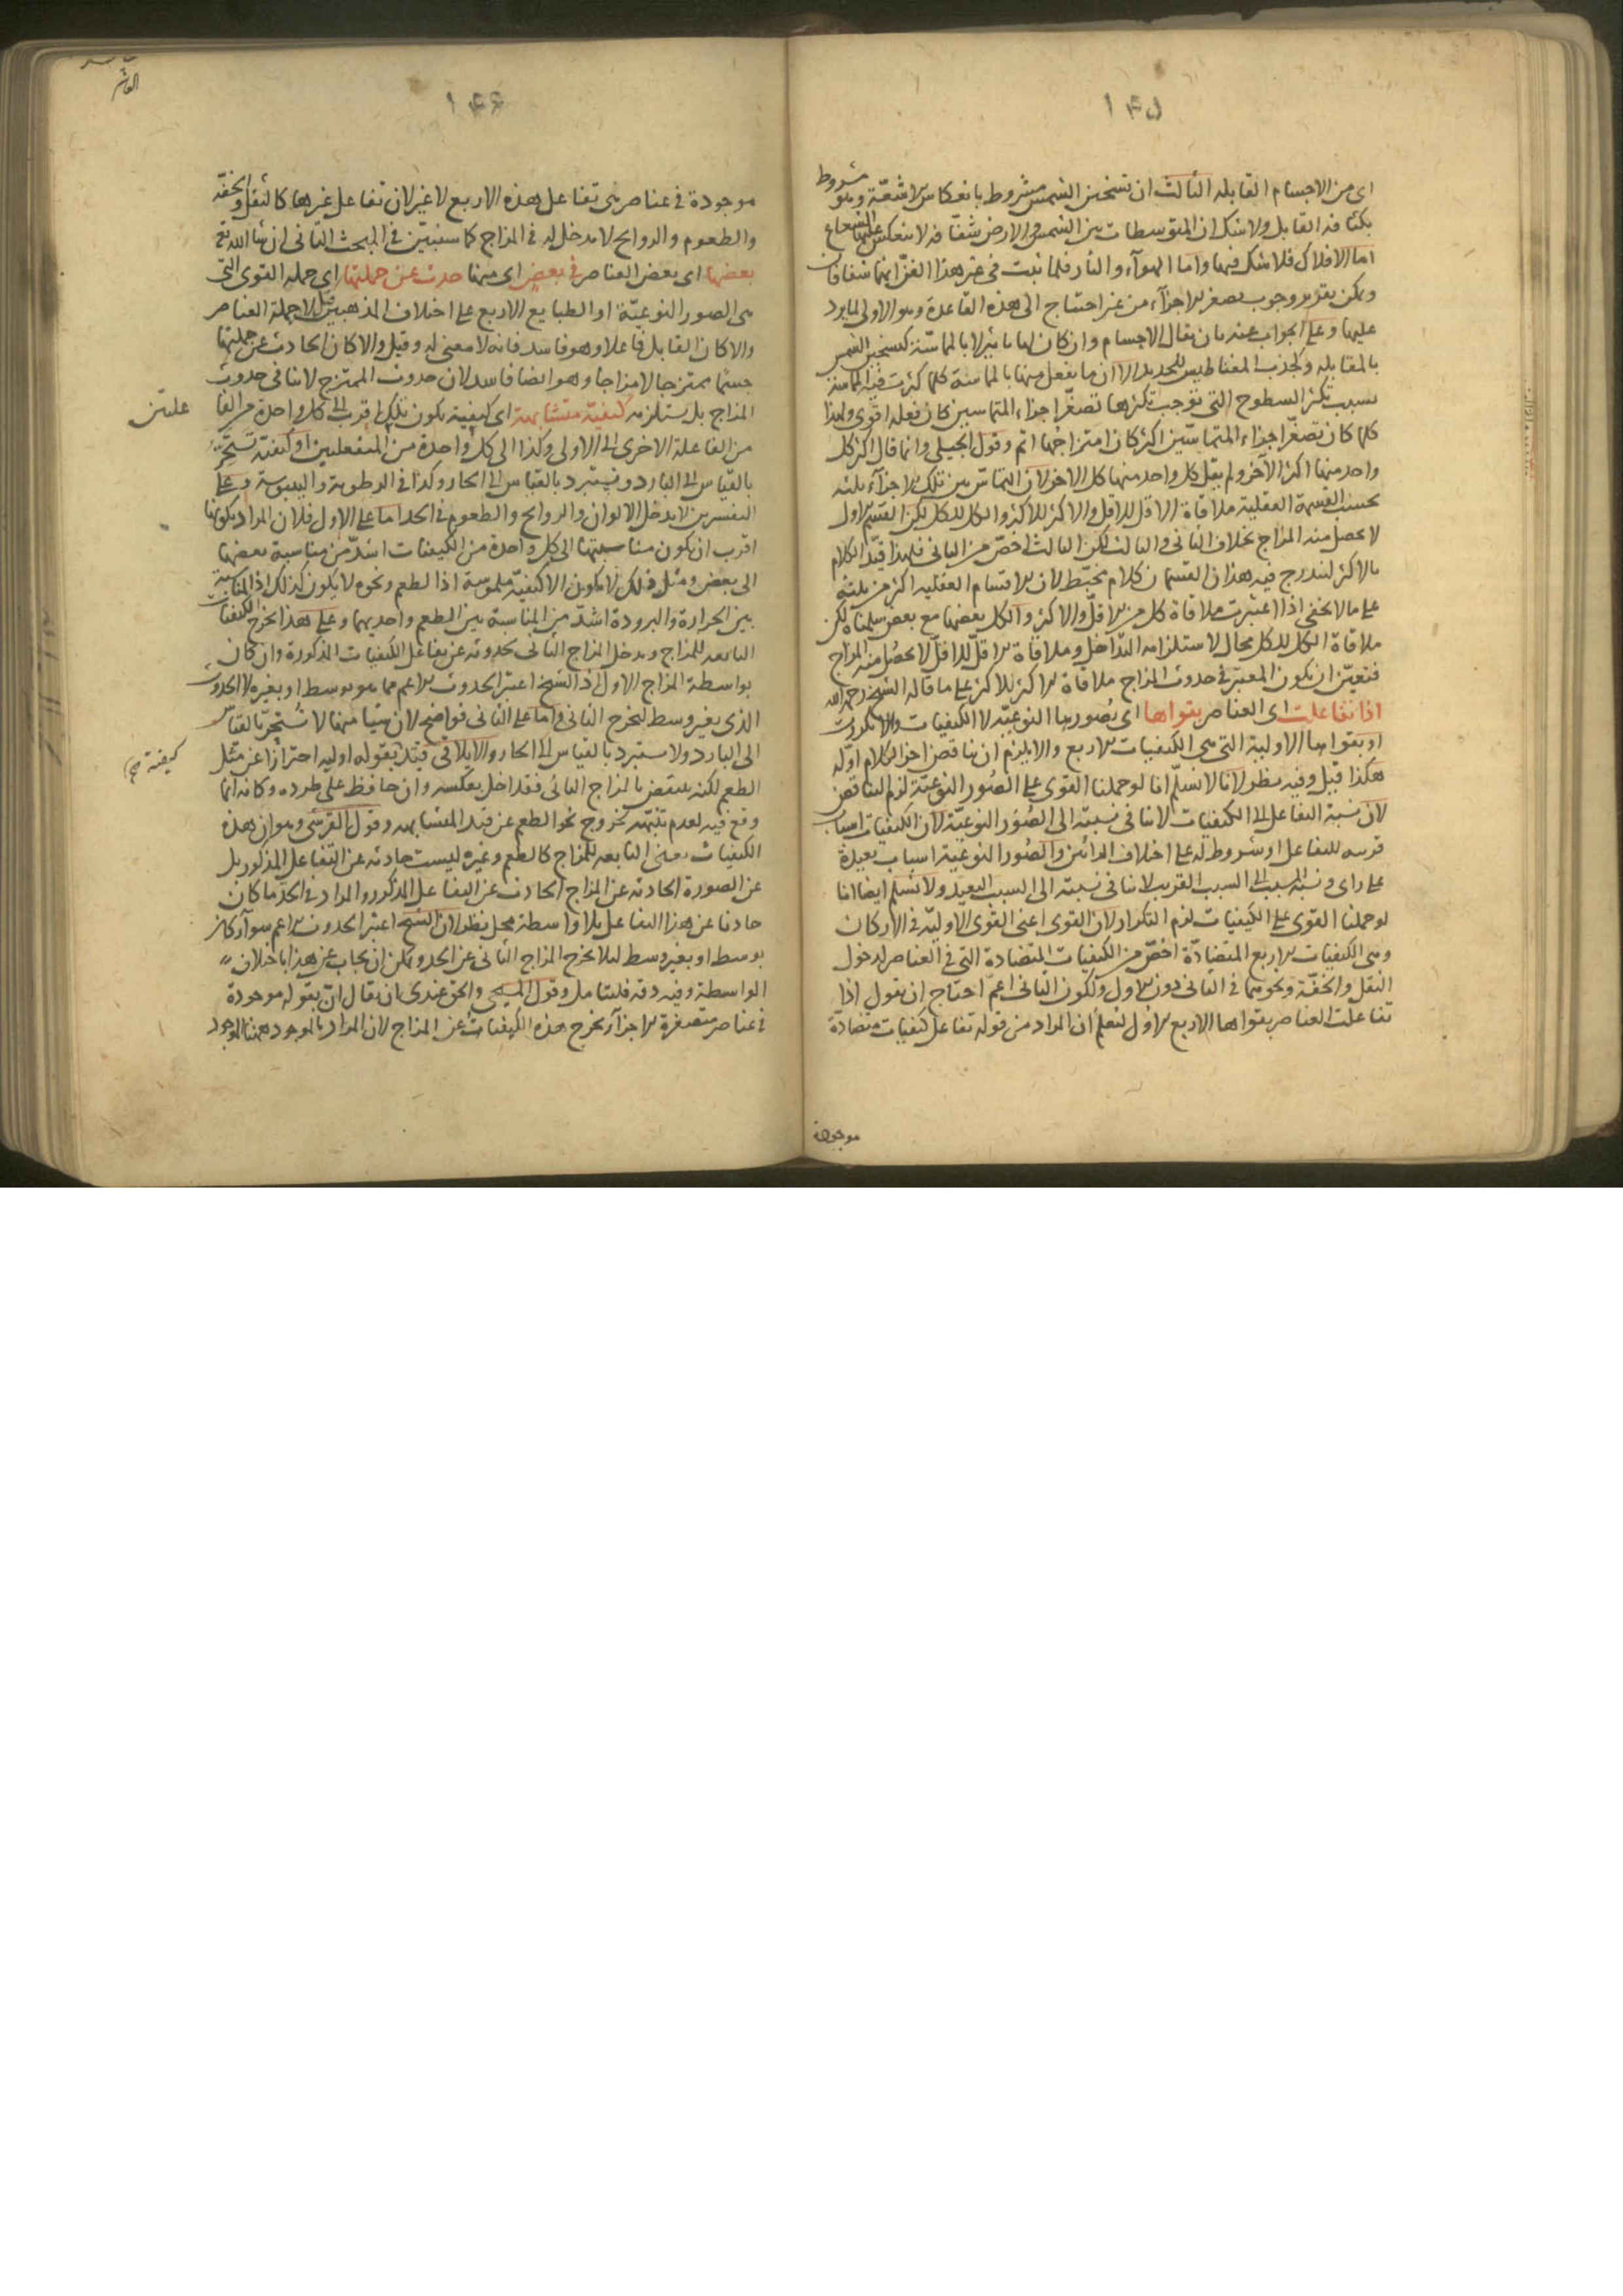 ١٤٥
اى من الاجسام القابله الثالث ان تسخين الشمس مشروط بانعكاس الاشعّة وهو مشروط
بكثافة القابل ولا شك ان المتوسطات بين الشمس والارض شفافة لا ينعكس عليها الشعاع
اما الافلاك فلا شك فيها واما الهوآء والنار فلما ثبت فى غير هذا الفن انهما شفافان
ويمكن تقرير وجوب تصغر الاجزآء من غير احتياج الى هذه القاعدة وهو الاولى لما يرد
عليها وعلى الجواب عنه بان يقال الاجسام وان كان لها تاثير لا بالمماسّة كتسخين الشمس
بالمقابله وكجذب المغناطيس للحديد الا ان ما يفعل منها بالمماسة كلما كثرت فيه المماسة
بسبب تكثر السطوح التى توجب تكثرها تصغّر اجزاء المتماسين كان فعله اقوى ولهذا
كلما كان تصغّر اجزاء المتماسّين اكثر كان امتزاجهما اتم وقول الجيلى وانما قال اكثر كل
واحد منهما اكثر الآخر ولم يقل كل واحد منهما كل الاخر لان التماسّ بين تلك الاجزآء ثلثه
بحسب القسمة العقلية ملاقاة الاقل للاقل والاكثر للاكثر والكل للكل لكن القسم الاول
لا يحصل منه المزاج بخلاف الثانى والثالث لكن الثالث اخصّ من الثانى فلهذا قيّد الكلام
بالاكثر ليندرج فيه هذان القسمان كلام مخبّط لان الاقسام العقليه اكثر من ثلثة
على ما لا يخفى اذا اعتبرت ملاقاة كل من الاقلّ والاكثر والكل بعضها مع بعض سلمناه لكن
ملاقاة الكل للكل محال لاستلزامه التداخل وملاقاة الاقلّ للاقلّ لا يحصل منه المزاج
فتعيّن ان يكون المعتبر فى حدوث المزاج ملاقاة الاكثر للاكثر على ما قاله الشيخ رحمه الله
اذا تفاعلت اى العناصر بقواها اى بصورها النوعيّه لا الكيفيات والا تكررت
او بقواها الاولية التى هى الكيفيات الاربع والا يلزم ان يناقض اخر الكلام اوّله
هكذا قيل وفيه نظر لانا لا نسلّم انا لو حملنا القوى على الصور النوعيّة لزم التناقض
لان نسبة التفاعل الى الكيفيات لا ينافى نسبته الى الصُوَر النوعيّة لان الكيفيات اسباب
قريبه للتفاعل او شروط له على اختلاف الرائين والصُوَر النوعية اسباب بعيدة
على راى ونسبة المسبب الى السبب القريب لا ينافى نسبته الى السبب البعيد ولا نسلم ايضا انا
لو حملنا القوى على الكيفيات لزم التكرار لان القوى اعنى القوى الاوليّة فى الاركان
وهى الكيفيات الاربع المتضادّة اخصّ من الكيفيات المتضادة التى فى العناصر لدخول
الثقل والخفّة ونحوهما فى الثانى دون الاول ولكون الثانى اعمّ احتاج ان يقول اذا
تفاعلت العناصر بقواها الاربع الاول ليُعلم ان المراد من قوله تفاعل كيفيات متضادّة
موجودة
١٤٦
العاشر
موجودة فى عناصر هى تفاعل هذه الاربع لا غير لان تفاعل غيرها كالثقل والخفّه
والطعوم والروايح لا مدخل له فى المزاج كما سنبيّن فى المبحث الثانى ان شا الله تع
بعضها اى بعض العناصر فى بعض اى منها حدث عن جملتها اى جمله القوى التى
هى الصور النوعيّة او الطبايع الاربع على اختلاف المذهبين قيل لا جملة العناصر
والا كان القابل فاعلا وهو فاسد فانه لا معنى له وقيل والا كان الحادث عن جملتها
جسما ممتزجا لا مزاجا وهو ايضا فاسد لان حدوث الممتزج لا ينافى حدوث
المزاج بل يستلزمه كيفيّة متشابهة اى كيفية تكون تلك اقرب الى كل واحدة من الفاعلتين
من الفاعلة الاخرى الى الاولى وكذا الى كل واحدة من المنفعلين او كيفية تستحرّ
بالقياس الى البارد وتستبرد بالقياس الى الحار وكذا فى الرطوبة واليبوسة وعلى
التفسيرين لا يدخل الالوان والروايح والطعوم فى الحد اما على الاول فلان المراد بكونها
اقرب ان يكون مناسبتها الى كل واحدة من الكيفيات اشدّ من مناسبة بعضها
الى بعض ومثل ذلك لا يكون الا كيفيّة ملموسة اذ الطعم ونحوه لا يكون كذلك اذ المناسبة
بين الحرارة والبرودة اشدّ من المناسبة بين الطعم واحديهما وعلى هذا يخرج الكيفيات
التابعه للمزاج ويدخل المزاج الثانى لحدوثه عن تفاعل الكيفيات المذكورة وان كان
بواسطة المزاج الاول اذ الشيخ اعتبر الحدوث الاعم مما هو بوسط او بغيره لا الحدوث
الذى بغير وسط ليخرج الثانى واما على الثانى فواضح لان شيئا منها لا تُستحرّ بالقياس
الى البارد ولا يستبرد بالقياس الى الحار والايلاقى قيّد بقوله اوليه احترازا عن مثل كيفية صح
الطعم لكنه ينتقض بالمزاج الثانى فقد اخل بعكسه وان حافظ على طرده وكانه انما
وقع فيه لعدم تنبّهه لخروج نحو الطعم عن قيد المتشابهه وقول القرشى وهو ان هذه
الكيفيات يعنى التابعه للمزاج كالطعم وغيره ليست حادثه عن التفاعل المذكور بل
عن الصورة الحادثه عن المزاج الحادث عن التفاعل المذكور والمراد فى الحدّ ما كان
حادثا عن هذا التفاعل بلا واسطة محل نظر لان الشيخ اعتبر الحدوث الاعم سوآء كان
بوسط او بغير وسط لئلا يخرج المزاج الثانى عن الحد ويمكن ان يجاب عن هذا باختلاف
الواسطة وفيه دقه فليتامل وقول المسيحى والحق عندى بان يقال ان بقوله موجودة
فى عناصر متصغرة الاجزآء يخرج هذه الكيفيات عن المزاج لان المراد بالموجود ههنا الوجود